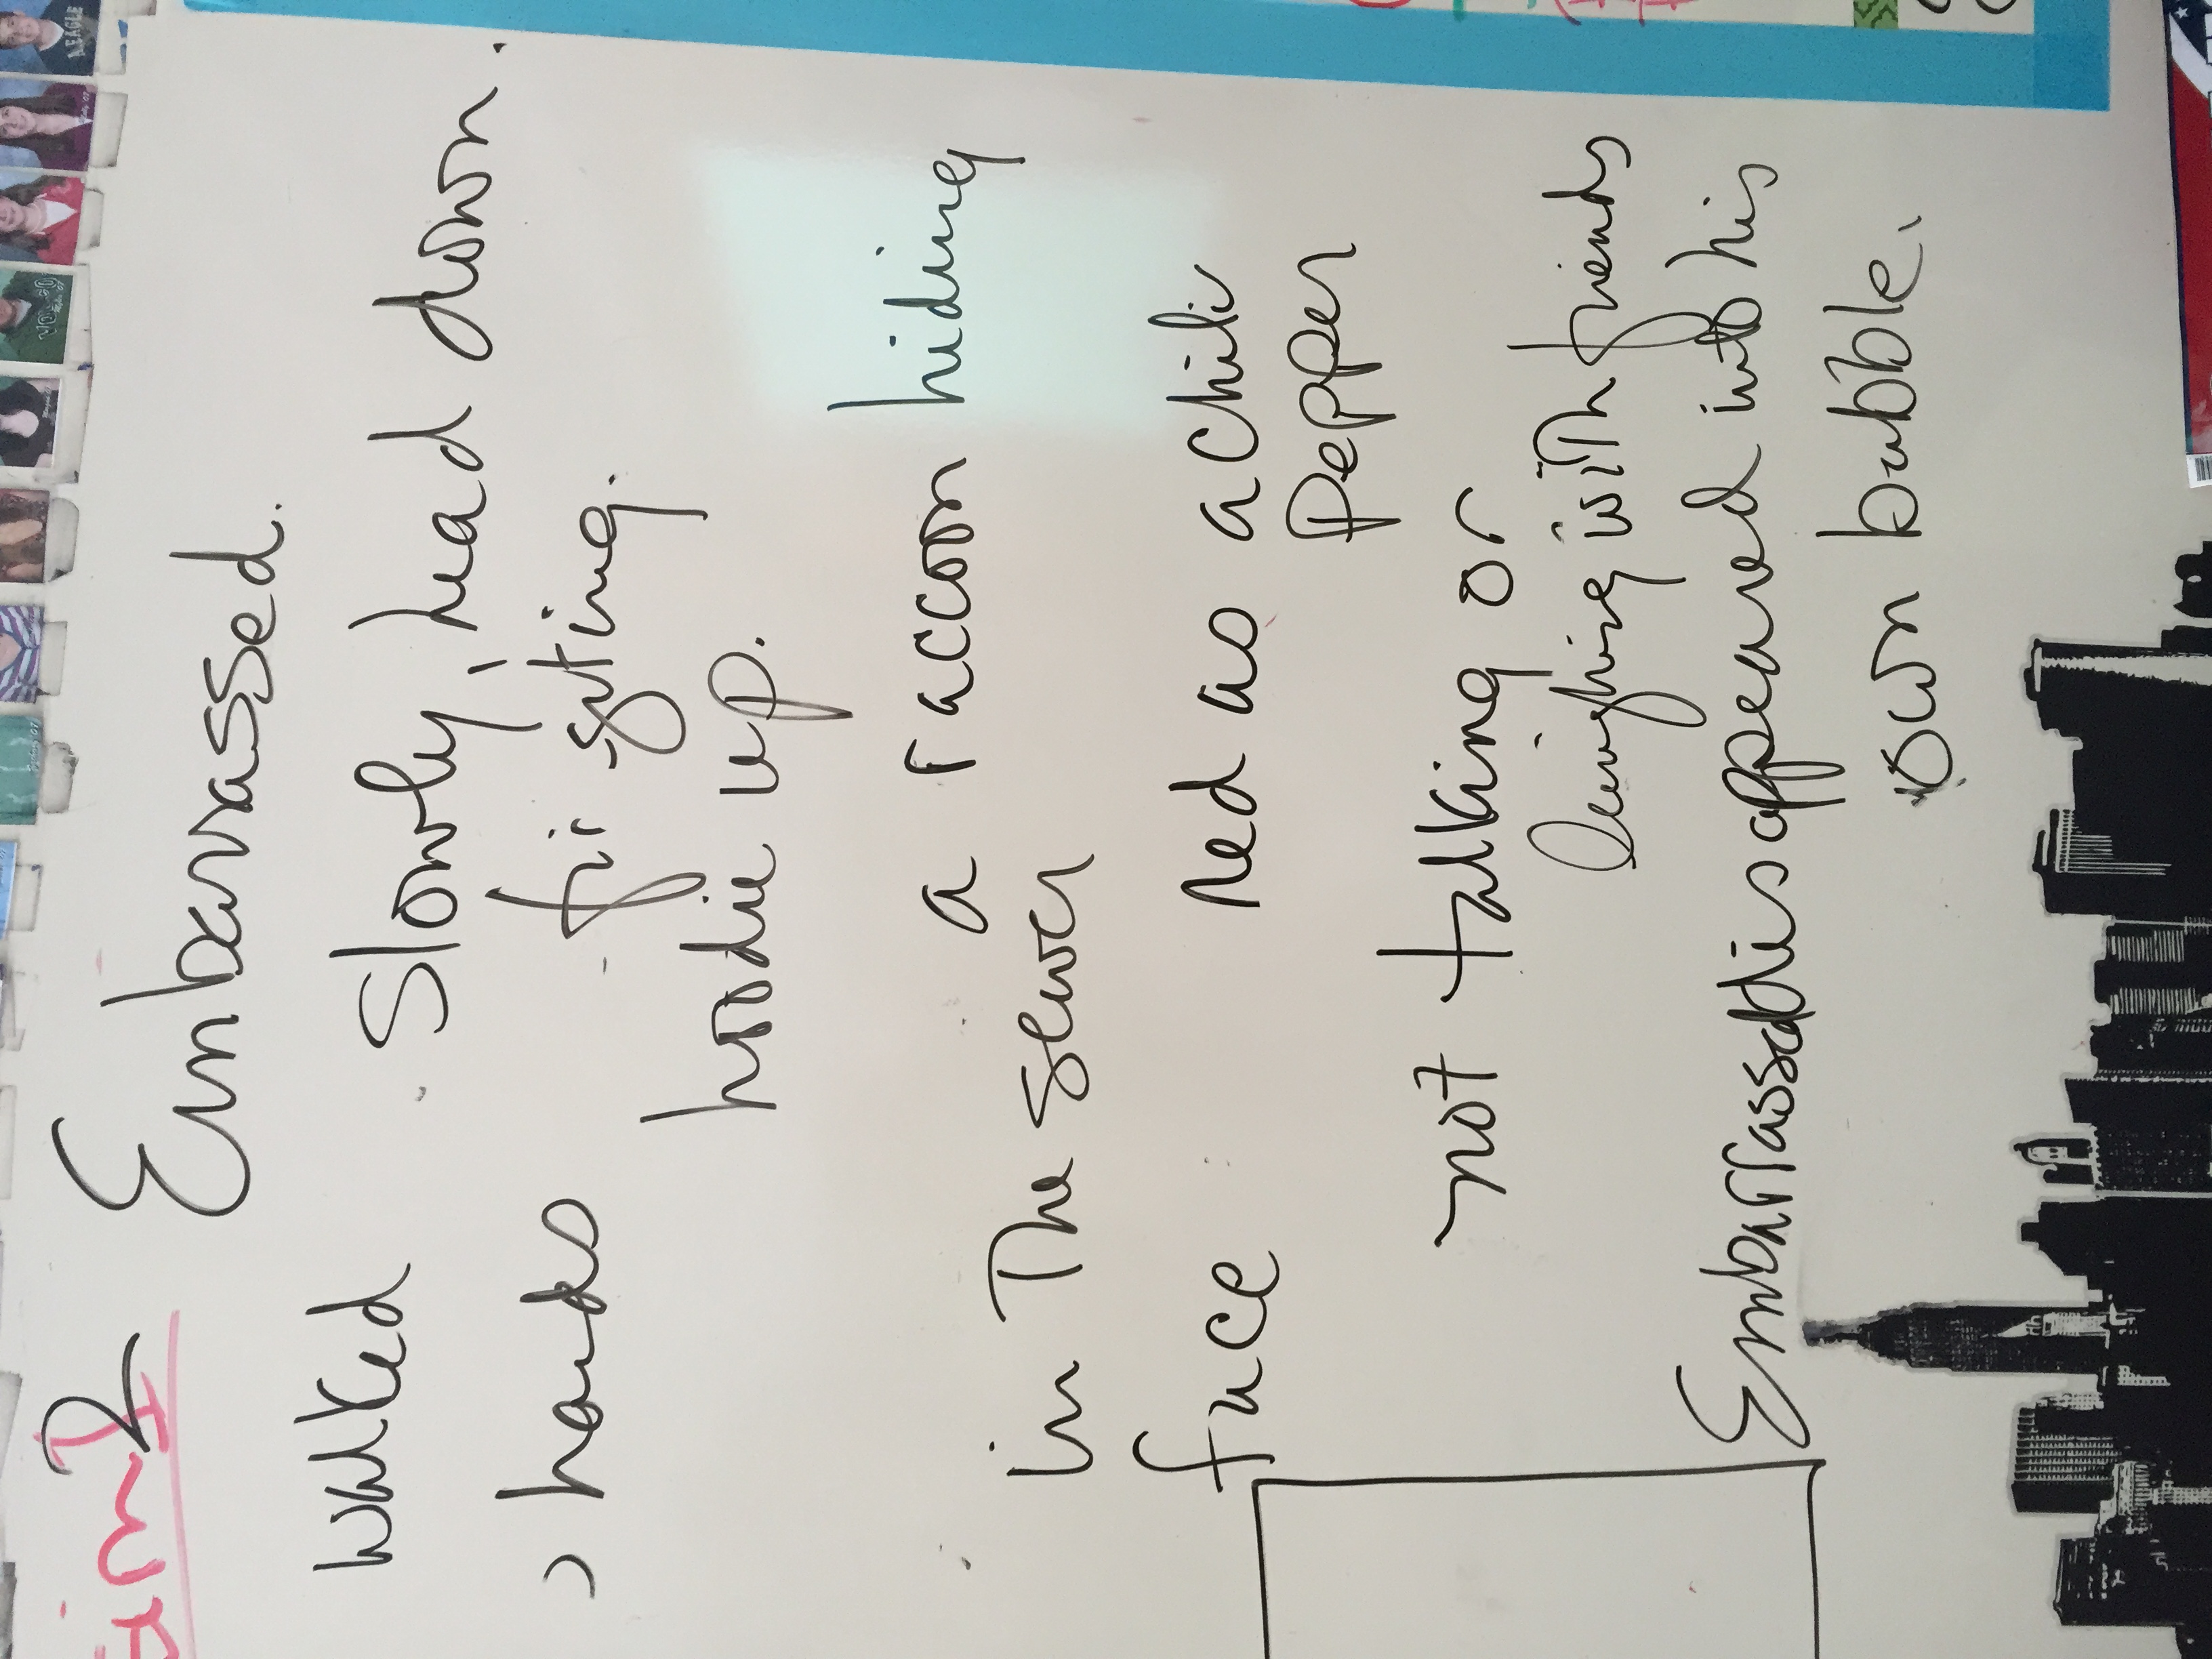 Embarrassed.
walked slowly, head down.
hands fidgeting.
hoodie up.
a raccoon hiding
in The sewer
face red as a chili
pepper
not talking or
laughing with friends
Embarrassed disappeared into his
own bubble.